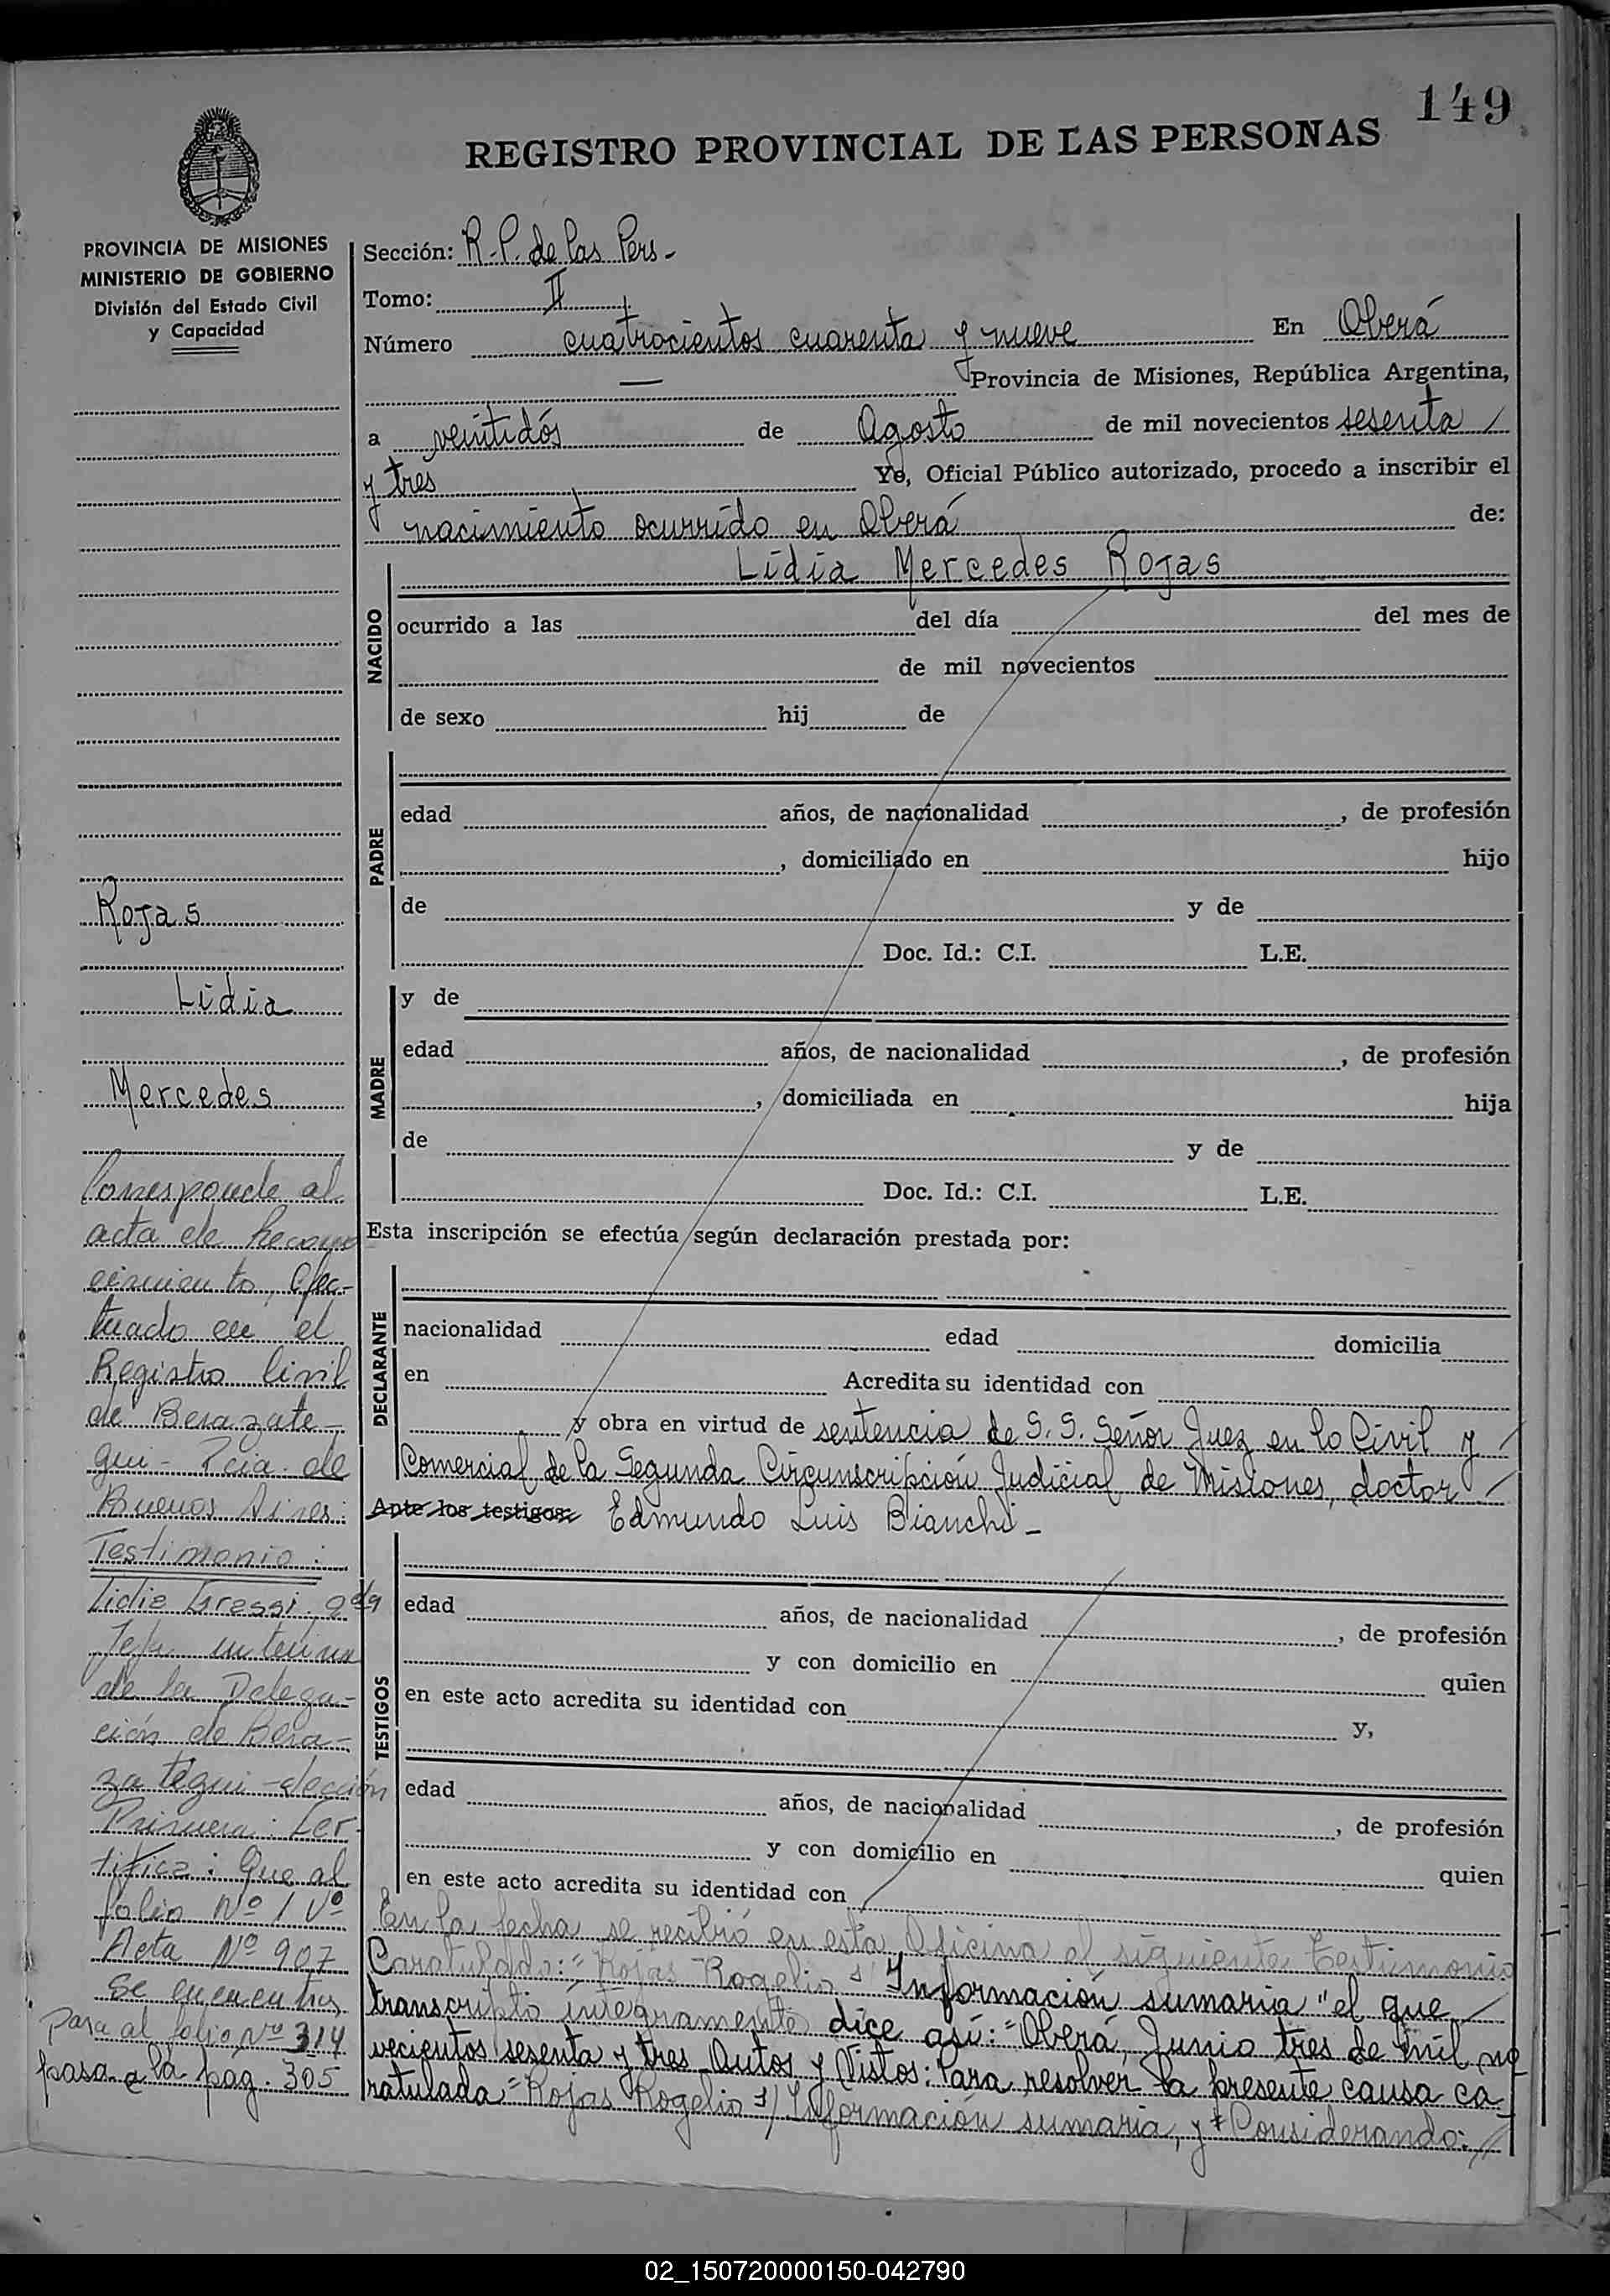 149
REGISTRO PROVINCIAL DE LAS PERSONAS
PROVINCIA DE MISIONES
MINISTERIO DE GOBIERNO
División del Estado Civil
y Capacidad
Sección: R.P. de las Pers.-
Tomo: II
Número cuatrocientos cuarenta y nueve En Oberá
— Provincia de Misiones, República Argentina,
a veintidós de Agosto de mil novecientos sesenta /
y tres Yo, Oficial Público autorizado, procedo a inscribir el
nacimiento ocurrido en Oberá de:
NACIDO
Lidia Mercedes Rojas
ocurrido a las del día del mes de
de mil novecientos
de sexo hij de
PADRE
edad años, de nacionalidad , de profesión
, domiciliado en hijo
de y de
Doc. Id.: C.I. L.E.
MADRE
y de
edad años, de nacionalidad , de profesión
, domiciliada en hija
de y de
Doc. Id.: C.I. L.E.
Esta inscripción se efectúa según declaración prestada por:
DECLARANTE
nacionalidad edad domicilia
en Acredita su identidad con
y obra en virtud de sentencia de S.S. Señor Juez en lo Civil y /
Comercial de la Segunda Circunscripción Judicial de Misiones, doctor /
Ante los testigos: Edmundo Luis Bianchi -
TESTIGOS
edad años, de nacionalidad , de profesión
y con domicilio en quien
en este acto acredita su identidad con y,
edad años, de nacionalidad , de profesión
y con domicilio en quien
en este acto acredita su identidad con
En la fecha se recibió en esta Oficina el siguiente Testimonio
Caratulado: "Rojas Rogelio s/ Información sumaria" el que /
transcripto íntegramente dice así: "Oberá, Junio tres de mil no
vecientos sesenta y tres. Autos y Vistos: Para resolver la presente causa ca
ratulada "Rojas Rogelio s/ Información sumaria, y Considerando: //
Rojas
Lidia
Mercedes
Corresponde al
acta de Recono
cimiento, efec-
tuado en el
Registro Civil
de Berazate-
gui - Pcia. de
Buenos Aires:
Testimonio:
Lidia Gressi
Jefa interina
de la Delega-
ción de Bera-
zategui - sección
Primera: Cer-
tifica: Que al
folio Nº 1 Vº
Acta Nº 907
se encuentra
Pasa al folio Nº 314
pasa a la pág. 305
02_150720000150-042790